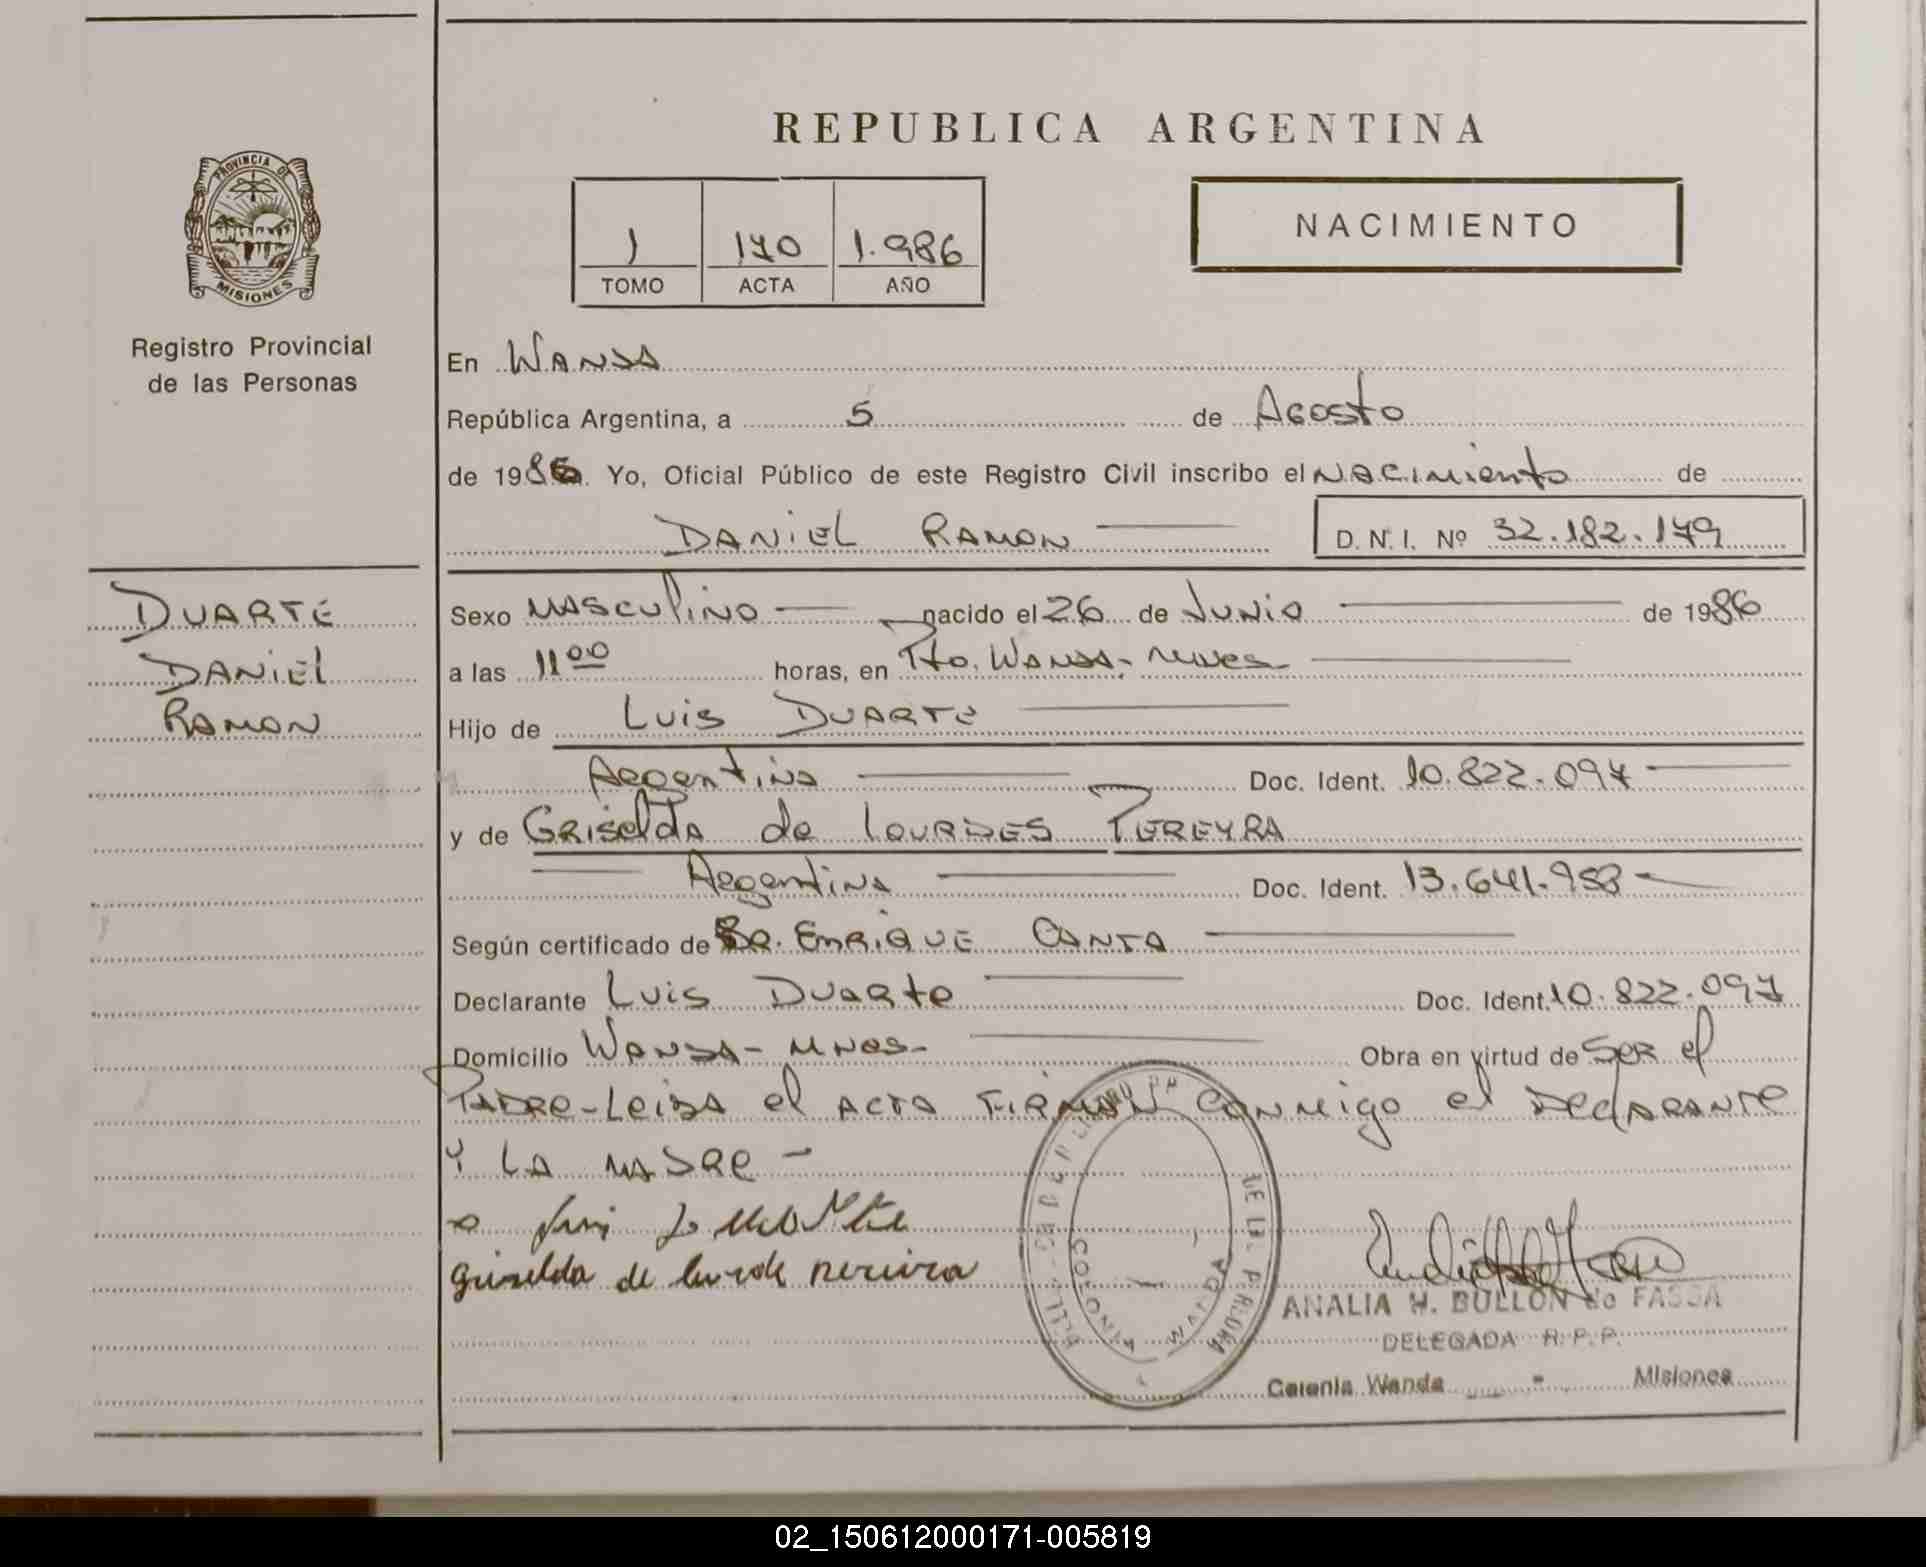 REPUBLICA ARGENTINA
PROVINCIA DE
MISIONES
Registro Provincial
de las Personas
1 170 1.986
TOMO ACTA AÑO
NACIMIENTO
En WANDA
República Argentina, a 5 de AGOSTO
de 1986. Yo, Oficial Público de este Registro Civil inscribo el NACIMIENTO de
DANIEL RAMON D.N.I. Nº 32.182.179
DUARTE
DANIEL
RAMON
Sexo MASCULINO nacido el 26 de JUNIO de 1986
a las 11 00 horas, en Pto. WANDA-MNES
Hijo de LUIS DUARTE
ARGENTINA Doc. Ident. 10.822.097
y de GRISELDA de LOURDES PEREYRA
ARGENTINA Doc. Ident. 13.641.958
Según certificado de DR. ENRIQUE CANTA
Declarante LUIS DUARTE Doc. Ident. 10.822.097
Domicilio WANDA-MNES- Obra en virtud de SER el
PADRE-LEIDA el ACTA FIRMAN CONMIGO el DECLARANTE
Y LA MADRE-
griselda de
COLONIA WANDA
ANALIA H. BULLON de FASSA
DELEGADA R.P.P.
Colonia Wanda - Misiones
02_150612000171-005819